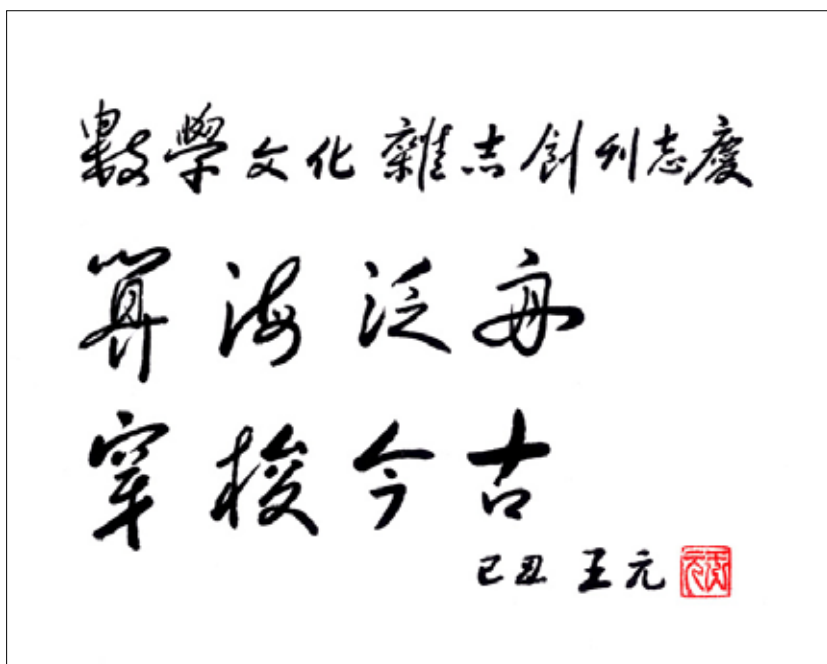 數學文化 雜志創刊志慶
算海泛舟
穿梭今古
己丑 王元